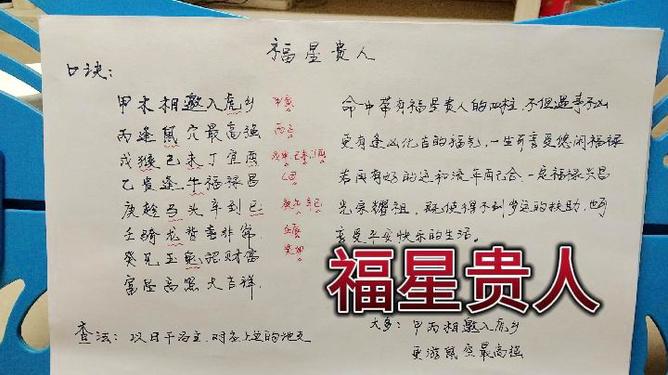 福星贵人
口诀:
甲木相邀入虎乡 甲寅
丙逢鼠穴最高强 丙子
戊猴己未丁宜酉 戊申,己未,丁酉
乙贵逢牛福禄昌 乙丑
庚趁马头辛到巳 庚午 辛巳
壬骑龙背喜非常 壬辰
癸见玉兔 财富 癸卯
富 高照大吉祥
命中带有福星贵人的四柱,不但遇事不凶
更有逢凶化吉的福气,一生可享受悠闲福禄
若再有好的运和流年配合一定福禄兴昌
光宗耀祖,疑使得不到岁运的扶助,也可
享受平安快乐的生活。
福星贵人
查法:以日干为主,对 上 的地支
大多:甲丙相邀入虎乡
更游鼠穴最高强